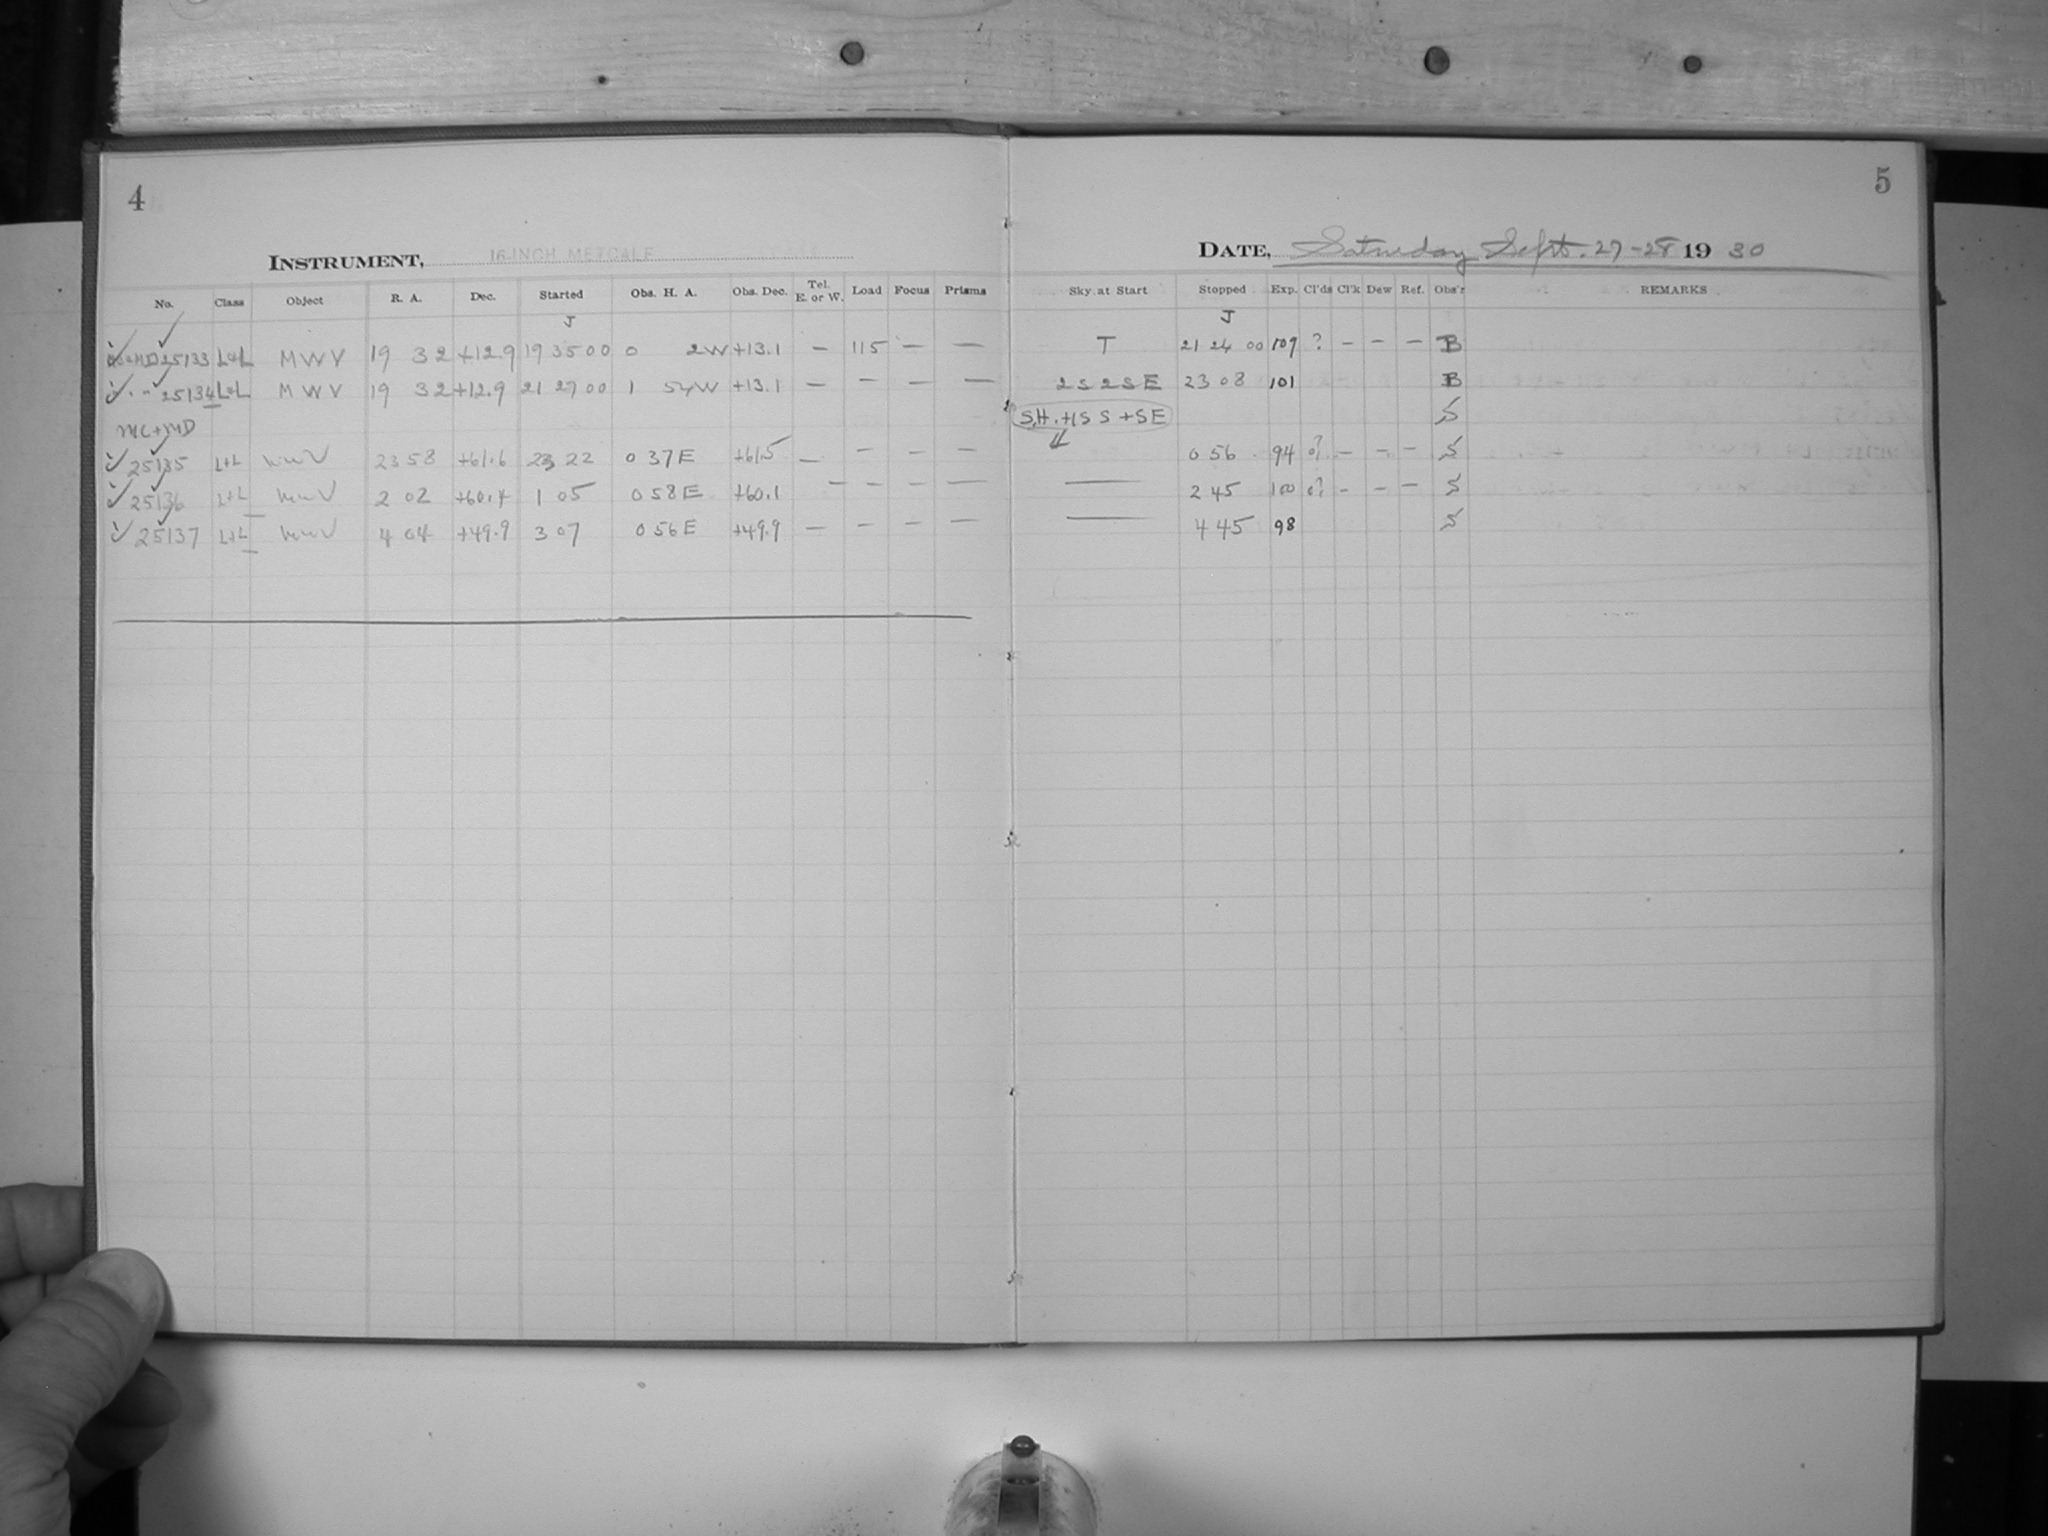 4
INSTRUMENT, 16-INCH METCALF
No. Class Object R. A. Dec. Started Obs. H. A. Obs. Dec. Tel. E. or W. Load Focus Prisms
J
25133 L+L MWV 19 32 +12.9 19 35 00 0 2W +13.1 — 115 — —
" " 25134 L+L MWV 19 32 +12.9 21 27 00 1 54W +13.1 — — — —
MC+MD
25135 L+L MWV 23 58 +61.6 23 22 0 37E +61.5 — — — —
25136 L+L MWV 2 02 +60.4 1 05 0 58E +60.1 — — — —
25137 L+L MWV 4 04 +49.9 3 07 0 56E +49.9 — — — —
5
DATE, Saturday Sept. 27-28 1930
Sky at Start Stopped Exp. Cl'ds Cl'k Dew Ref. Obs'r REMARKS
J
T 21 24 00 109 ? – – – B
2S 2SE 23 08 101 B
S.H. +1S S+SE S
0 56 94 0? – – – S
— 2 45 100 0? – – – S
— 4 45 98 S